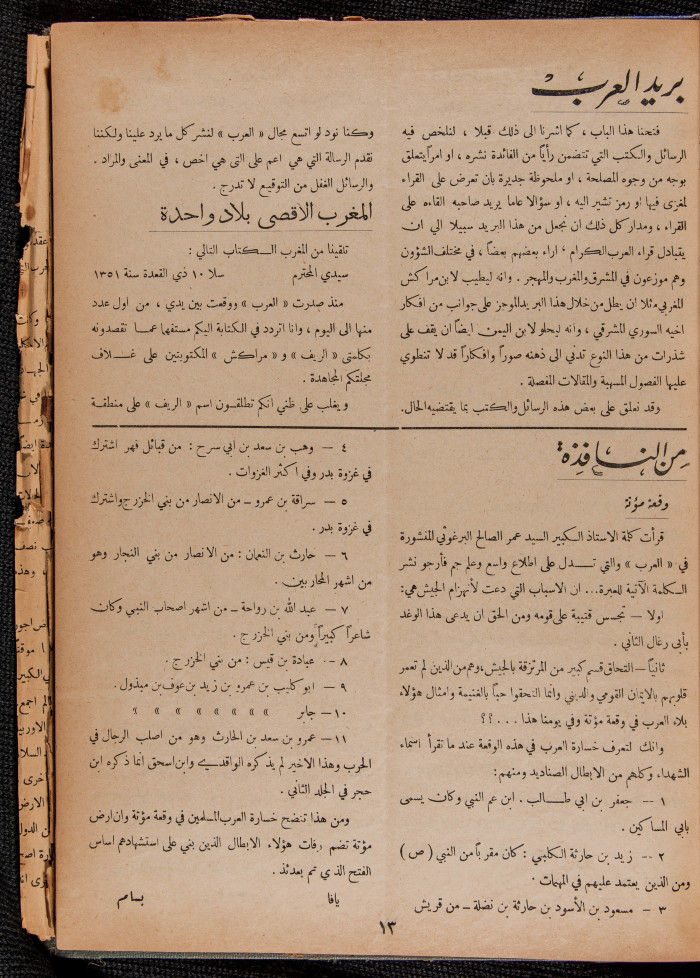 بريد العرب
فتحنا هذا الباب ، كما اشرنا الى ذلك قبلا ، لنلخص فيه
الرسائل والكتب التي تتضمن رأياً من الفائدة نشره ، او امراً يتعلق
بوجه من وجوه المصلحة ، او ملحوظة جديرة بان تعرض على القراء
لمغزى فيها او رمز تشير اليه ، او سؤالا عاما يريد صاحبه القاءه على
القراء ، ومدار كل ذلك ان نجعل من هذا البريد سبيلا الي ان
يتقابل قراء العرب الكرام ، اراء بعضهم بعضاً ، في مختلف الشؤون
وهم موزعون في المشرق والمغرب والمهجر . وانه ليطيب لابن مراكش
المغربي مثلا ان يطل من خلال هذا البريد الموجز على جوانب من افكار
اخيه السوري المشرقي ، وانه ليحلو لابن اليمن ايضاً ان يقف على
شذرات من هذا النوع تدني الى ذهنه صوراً وافكاراً قد لا تنطوي
عليها الفصول المسهبة والمقالات المفصلة .
وقد نعلق على بعض هذه الرسائل والكتب بما يقتضيه الحال.
وكنا نود لو اتسع مجال « العرب » لنشر كل ما يرد علينا ولكننا
نقدم الرسالة التي هي اعم على التى هي اخص ، في المعنى والمراد .
والرسائل الغفل من التوقيع لا تدرج .
المغرب الاقصى بلاد واحدة
تلقينا من المغرب الكتاب التالي :
سيدي المحترم سلا ١٠ ذي القعدة سنة ١٣٥١
منذ صدرت « العرب » ووقعت بين يدي ، من اول عدد
منها الى اليوم ، وانا اتردد في الكتابة اليكم مستفهما عما تقصدونه
بكلمتى « الريف » و « مراكش » المكتوبتين على غلاف
مجلتكم المجاهدة .
ويغلب على ظني انكم تطلقون اسم « الريف » على منطقة
من النافذة
وقعة مؤتة
قرأت كلمة الاستاذ الكبير السيد عمر الصالح البرغوثي المنشورة
في « العرب » والتي تدل على اطلاع واسع وعلم جم فأرجو نشر
الكلمة الآتية للعبرة... ان الاسباب التي دعت لأنهزام الجيش هي:
اولا – تجسس قتيبة على قومه ومن الحق ان يدعى هذا الوغد
بأبي رغال الثاني .
ثانياً – التحاق قسم كبير من المرتزقة بالجيش، وهم من الذين لم تعمر
قلوبهم بالايمان القومي والديني وانما التحقوا حباً بالغنيمة وامثال هؤلاء
بلاء العرب في وقعة مؤتة وفي يومنا هذا . . . ؟؟
وانك لتعرف خسارة العرب في هذه الوقعة عند ما تقرأ اسماء
الشهداء وكلهم من الابطال الصناديد ومنهم :
١ – جعفر بن ابي طالب . ابن عم النبي وكان يسمى
بابي المساكين .
٢ – زيد بن حارثة الكلبي : كان مقرباً من النبي ( ص )
ومن الذين يعتمد عليهم في المهمات .
٣ – مسعود بن الأسود بن حارثة بن نضلة – من قريش
٤ – وهب بن سعد بن ابي سرح : من قبائل فهر اشترك
في غزوة بدر وفي اكثر الغزوات .
٥ – سراقة بن عمرو – من الانصار من بني الخزرج واشترك
في غزوة بدر .
٦ – حارث بن النعمان : من الانصار من بني النجار وهو
من اشهر المحاربين .
٧ – عبد الله بن رواحة – من اشهر اصحاب النبي وكان
شاعراً كبيراً ومن بني الخزرج .
٨ – عبادة بن قيس : من بني الخزرج .
٩ – ابو كليب بن عمرو بن زيد بن عوف بن مبذول .
١٠ – جابر » » » » » » » »
١١ – عمرو بن سعد بن الحارث وهو من اصلب الرجال في
الحرب وهذا الاخير لم يذكره الواقدي وابن اسحق انما ذكره ابن
حجر في الجلد الثاني .
ومن هذا تتضح خسارة العرب المسلمين في وقعة مؤتة وان ارض
مؤتة تضم رفات هؤلاء الابطال الذين بني على استشهادهم اساس
الفتح الذي تم بعدئذ .
يافا بسام
١٣